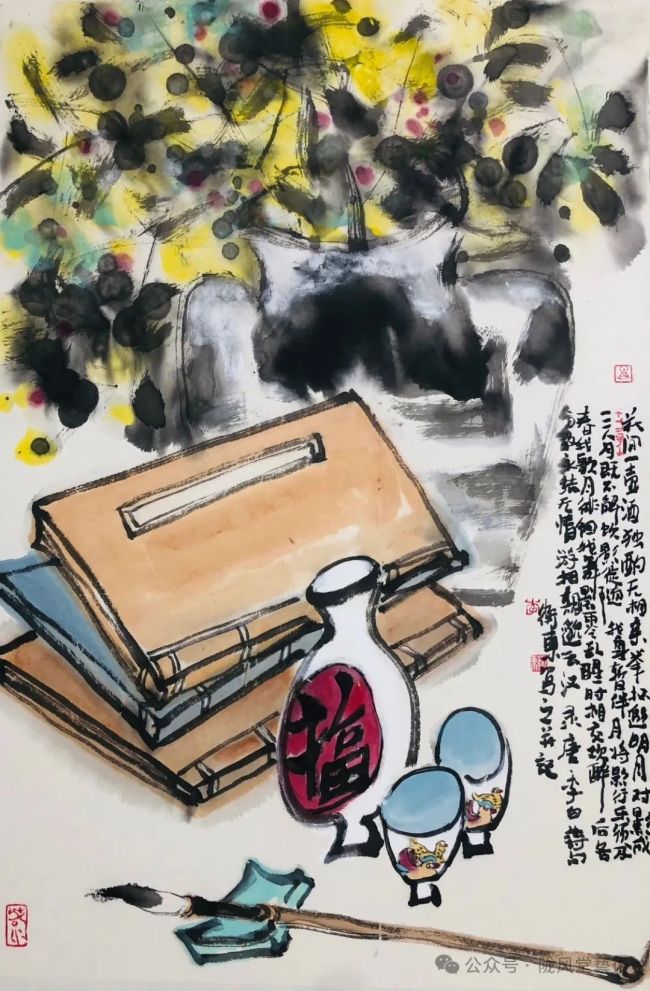 花间一壶酒独酌无相亲举杯邀明月对影成
三人月既不解饮影徒随我身暂伴月将影行乐须及
春我歌月徘徊我舞影零乱醒时相交欢醉后各
分散永结无情游相期邈云汉录唐李白诗句
写之并记
福
公众号·陇风堂艺